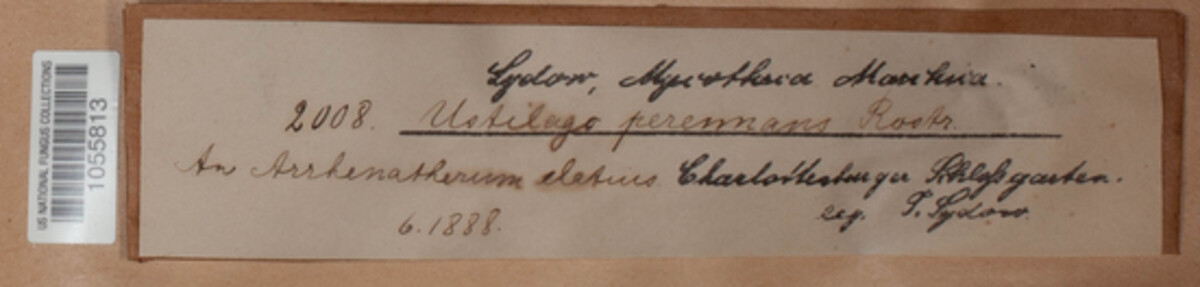 US NATIONAL FUNGUS COLLECTIONS
1055813
Sydow, Mycotheca Marchica.
2008. Ustilago perennans Rostr.
An Arrhenatherum elatius Charlottenburger Schloßgarten.
6.1888. leg. P. Sydow